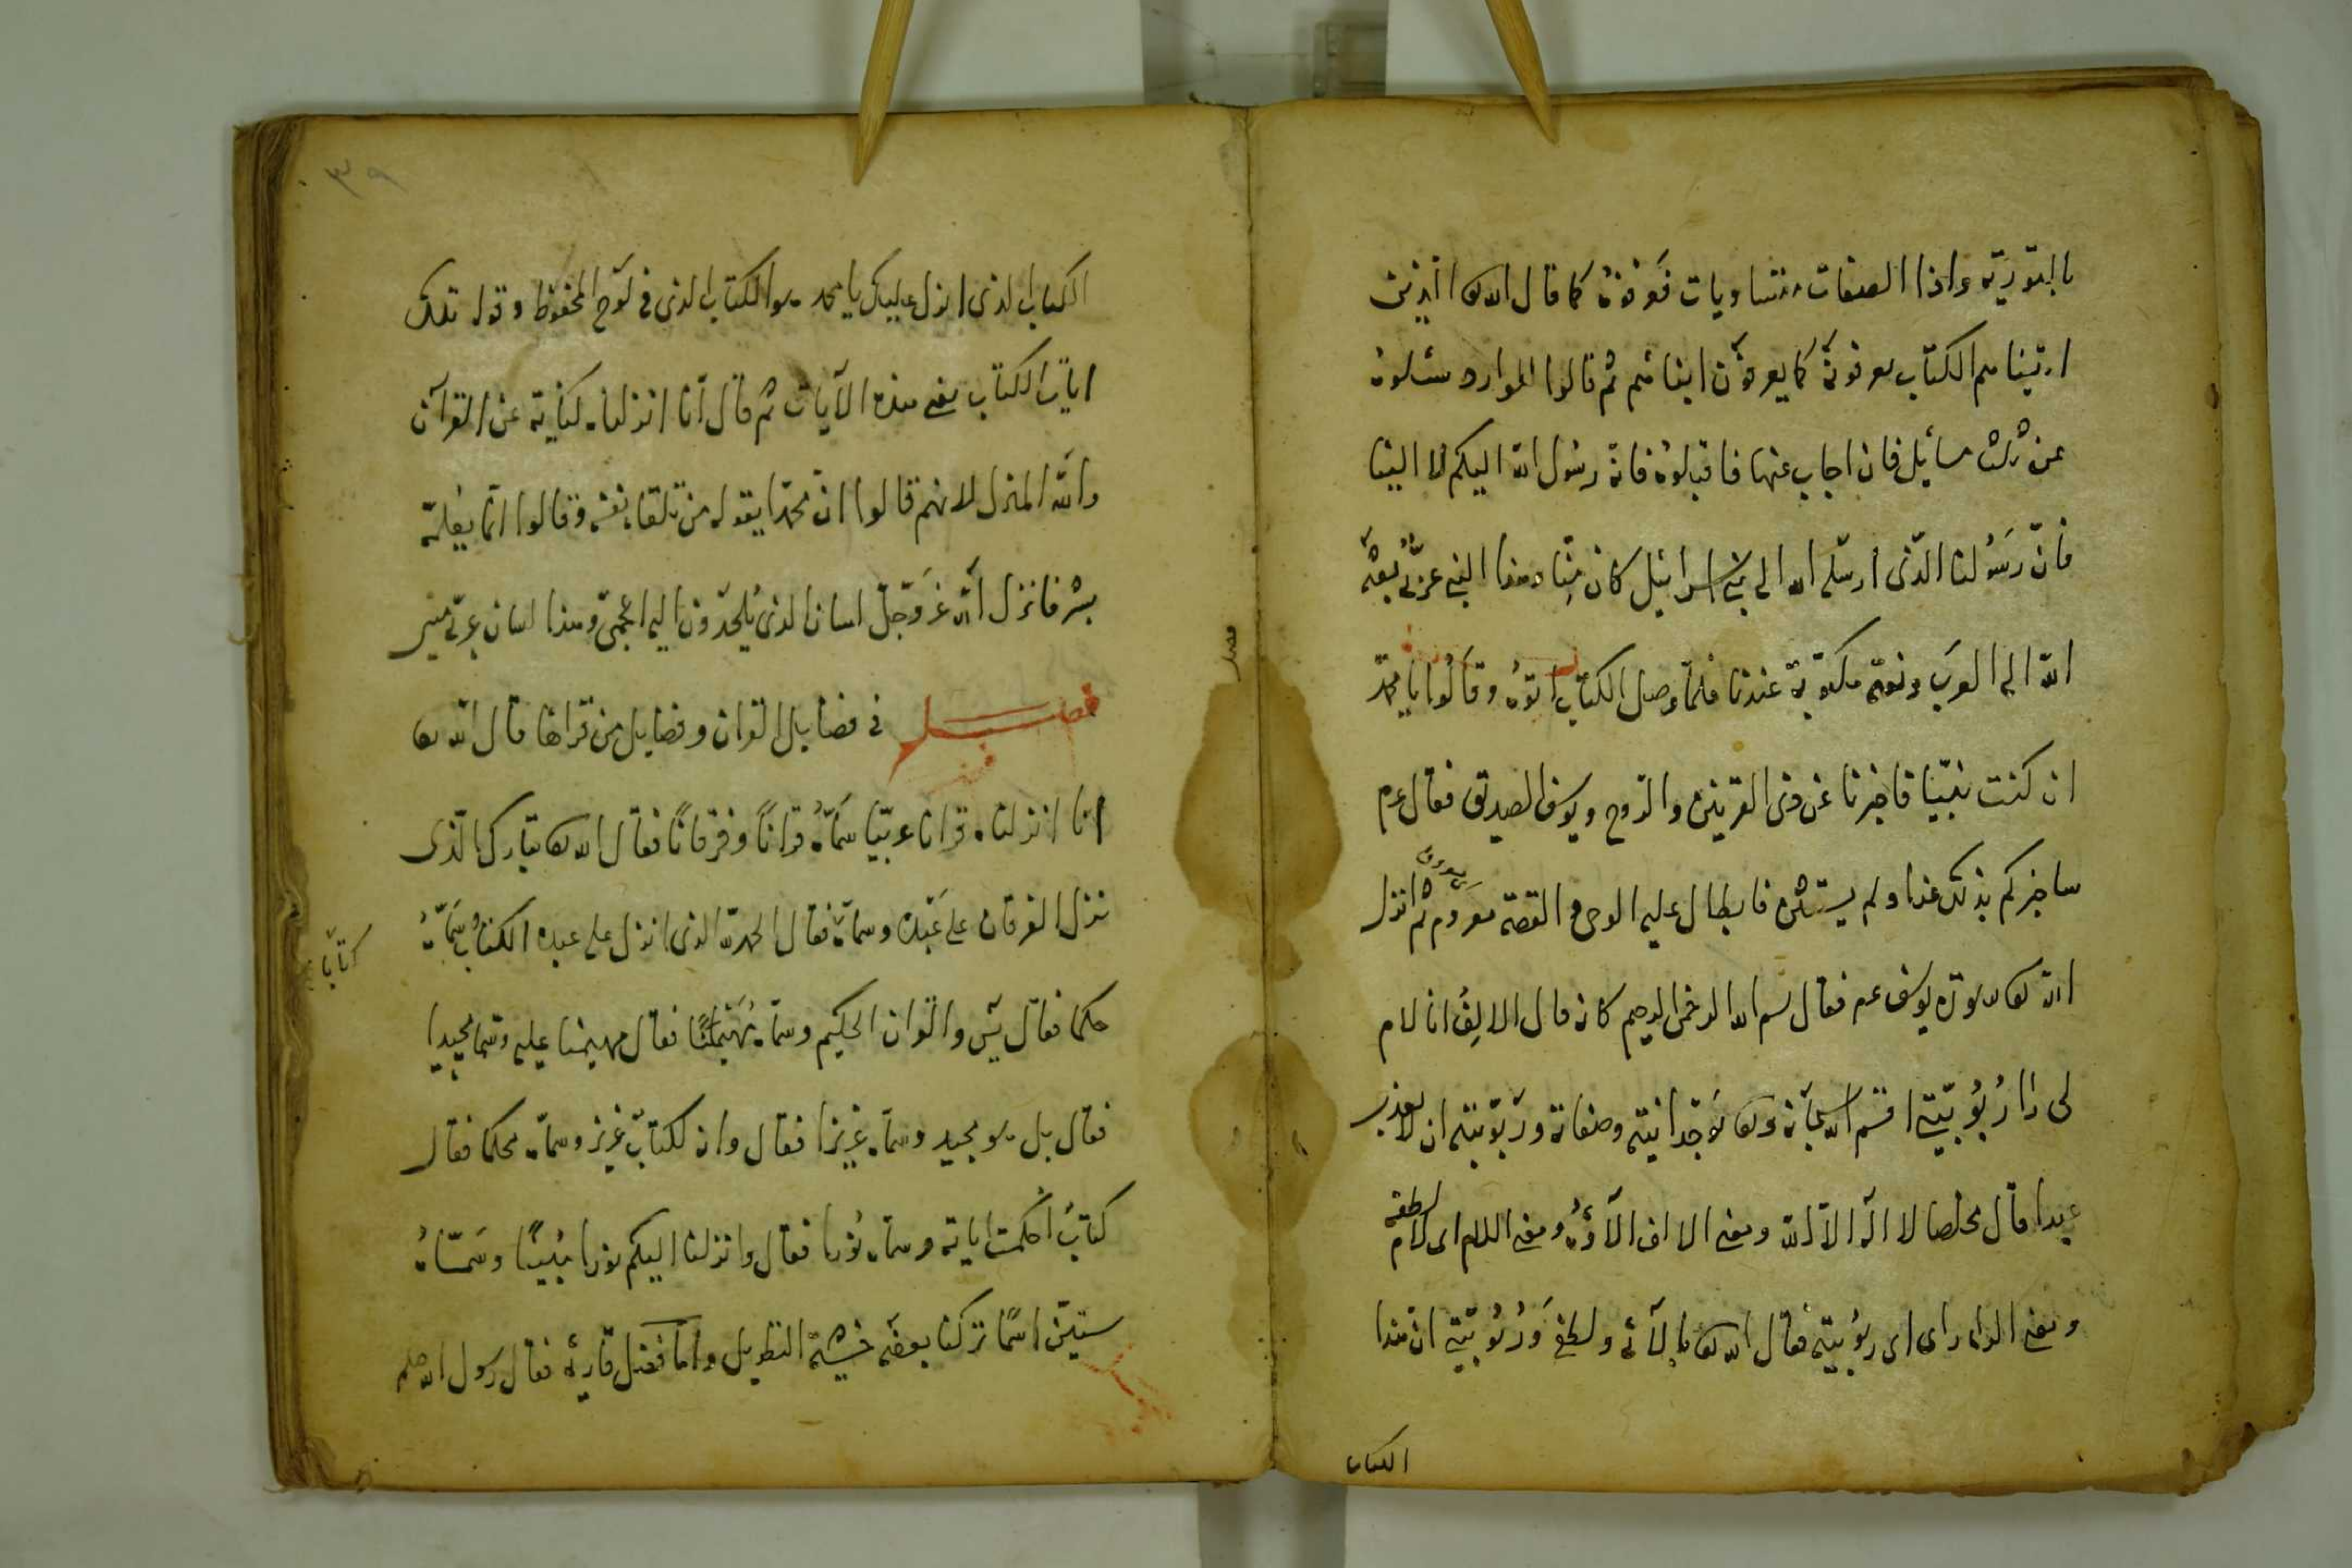 بالتوریة واذا الصفات متساویات فعرفوهٔ کما قال الله تع الذین
اتینٰاهم الکتاب یعرفونه کما یعرفون ابنائهم ثم قالوا سئلوهٔ
عن ثلث مسائل فان اجاب عنها فاقبلوهٔ فانه رسول الله الیکم لا الینا
فانّ رسولنا الذی ارسله الله الی بنی اسرائیل کان منّا وهذا النبی عربی بعثه
الله الی العرب ونعته مکتوبة عندنا فلما وصل الکتاب اتوهُ وقالوا یا محمد
ان کنت نبیّا فاخبرنا عن ذی القرنین والروح ویوسف الصدیق فقال عم
ساخبرکم بذلک غدا ولم یستثن فابطال علیه الوحی والقصة معروفة ثم انزل
الله تع سورة یوسف عم فقال بسم الله الرحمن الرحیم کانه قال الالف انا لام
لی را ربوبیتی اقسم الله سبحانه وتع بوحدانیته وصفاته وربوبیته ان لا یعذب
عبدا قال مخلصا لا اله الا الله ومعنی الالف الآؤهُ ومعنی اللام ای لام لطفه
ومعنی الراء رای ای ربوبیته فقال الله تع بالآئی ولطفی وربوبیتی ان هذا
الکتاب
۳۹
الکتاب الذی انزل علیک یا محمد هو الکتاب الذی فی لوح المحفوظ وقوله تلک
ایات الکتاب یعنی هذه الآیات ثم قال انا انزلناه کنایة عن القرآن
والله المنزل لانهم قالوا انّ محمّدا یقوله من تلقاء نفسه وقالوا انما یعلمه
بشر فانزل الله عزّ وجلّ لسان الذی یلحدون الیه اعجمی وهذا لسان عربی مبین
فصل فی فضایل القران وفضایل من قراها قال الله تع
انا انزلناه قرانا عربیّا سمّاهُ قرانًا وفرقانًا فقال الله تع تبارک الذی
نزل الفرقان علی عبده وسماه فقال الحمد لله الذی انزل علی عبده الکتاب سمّاهُ
کتابًا
حکما فقال یس والقران الحکیم وسماه مهیمنًا فقال مهیمنا علیه وسماه مجیدا
فقال بل هو مجید وسماه عزیزا فقال وانه لکتاب عزیز وسماه محکما فقال
کتابٌ اُحکمت ایاته وسماه نُورا فقال وانزلنا الیکم نورا مُبینًا وسمّاهُ
ستین اسمًا ترکنا بعضه خشیة التطویل واما فضل قاریهٔ فقال رسول الله صلعم